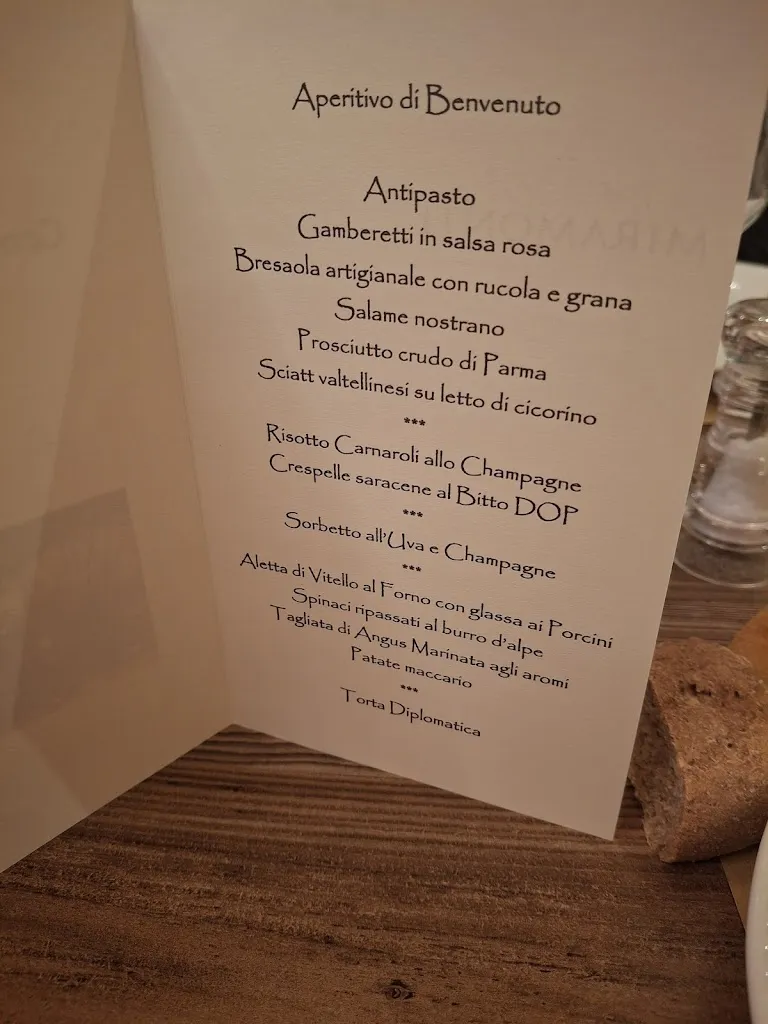 Aperitivo di Benvenuto
Antipasto
Gamberetti in salsa rosa
Bresaola artigianale con rucola e grana
Salame nostrano
Prosciutto crudo di Parma
Sciatt valtellinesi su letto di cicorino
***
Risotto Carnaroli allo Champagne
Crespelle saracene al Bitto DOP
***
Sorbetto all'Uva e Champagne
***
Aletta di Vitello al Forno con glassa ai Porcini
Spinaci ripassati al burro d'alpe
Tagliata di Angus Marinata agli aromi
Patate maccario
***
Torta Diplomatica